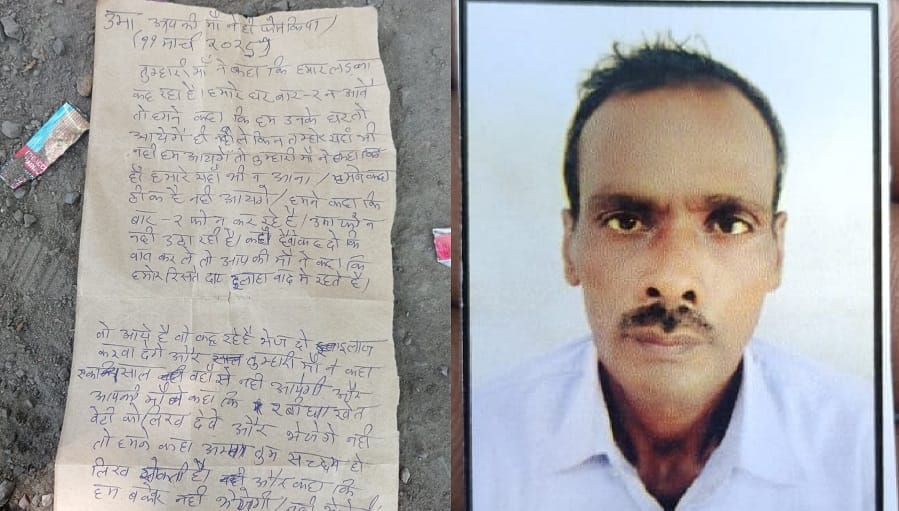 उमा आपकी माँ ने ही फोन किया)
(११ मार्च २०२५
तुम्हारी माँ ने कहा कि हमार लड़का
कह रहा है। हमारे घर बार-२ न आवै
तो हमने कहा कि हम उनके घर तो
आयेगें ही लेकिन तुम्हारे यहाँ भी
नही हम आयगे तो तुम्हारी माँ ने कहा कि
हाँ हमारे यहाँ भी न आना। हमने कहा
ठीक है नही आयगे। हमने कहा कि
बार-२ फोन कर रहे है। उमा फोन
नही उठा रही है। कहाँ है दो कि
बात कर ले तो आपकी माँ ने कहा कि
हमारे रिस्ते दार इलाहाबाद मे रहते है।
वो आये है वो कह रहे है भेज दो इलाज
करवा देगे और तुम्हारी माँ ने कहा
साल वहाँ से नही आयेगी और
आपकी माँ ने कहा कि २ बीघा खेत
बेटी को लिख देवे और भेजेगे नही
तो हमने कहा अम्मा तुम सचमुच हो
लिख सकती है। और कहा कि
हम बकोर नही भेजेगी।